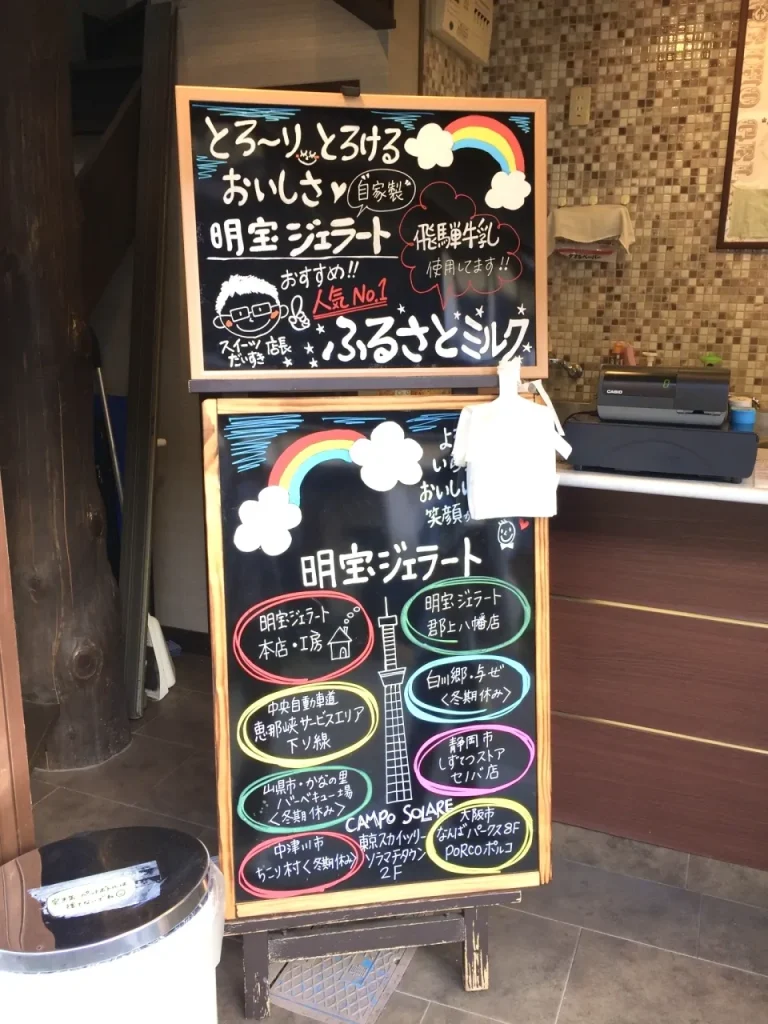 とろ～りとろける
おいしさ♥
自家製
明宝ジェラート
飛騨牛乳
使用してます!!
おすすめ!!
人気No.1
ふるさとミルク
スイーツ
だいすき店長
おいし
笑顔
明宝ジェラート
明宝ジェラート
本店・工房
明宝ジェラート
郡上八幡店
中央自動車道
恵那峡サービスエリア
下り線
白川郷・与ぜ
<冬期休み>
山県市・かなの里
バーベキュー場
<冬期休み>
静岡市
しずてつストア
セノバ店
中津川市
ちこり村<冬期休み>
CAMPO SOLARE
東京スカイツリー
ソラマチタウン
2F
大阪市
なんばパークス8F
PORCO ポルコ
CASIO
0